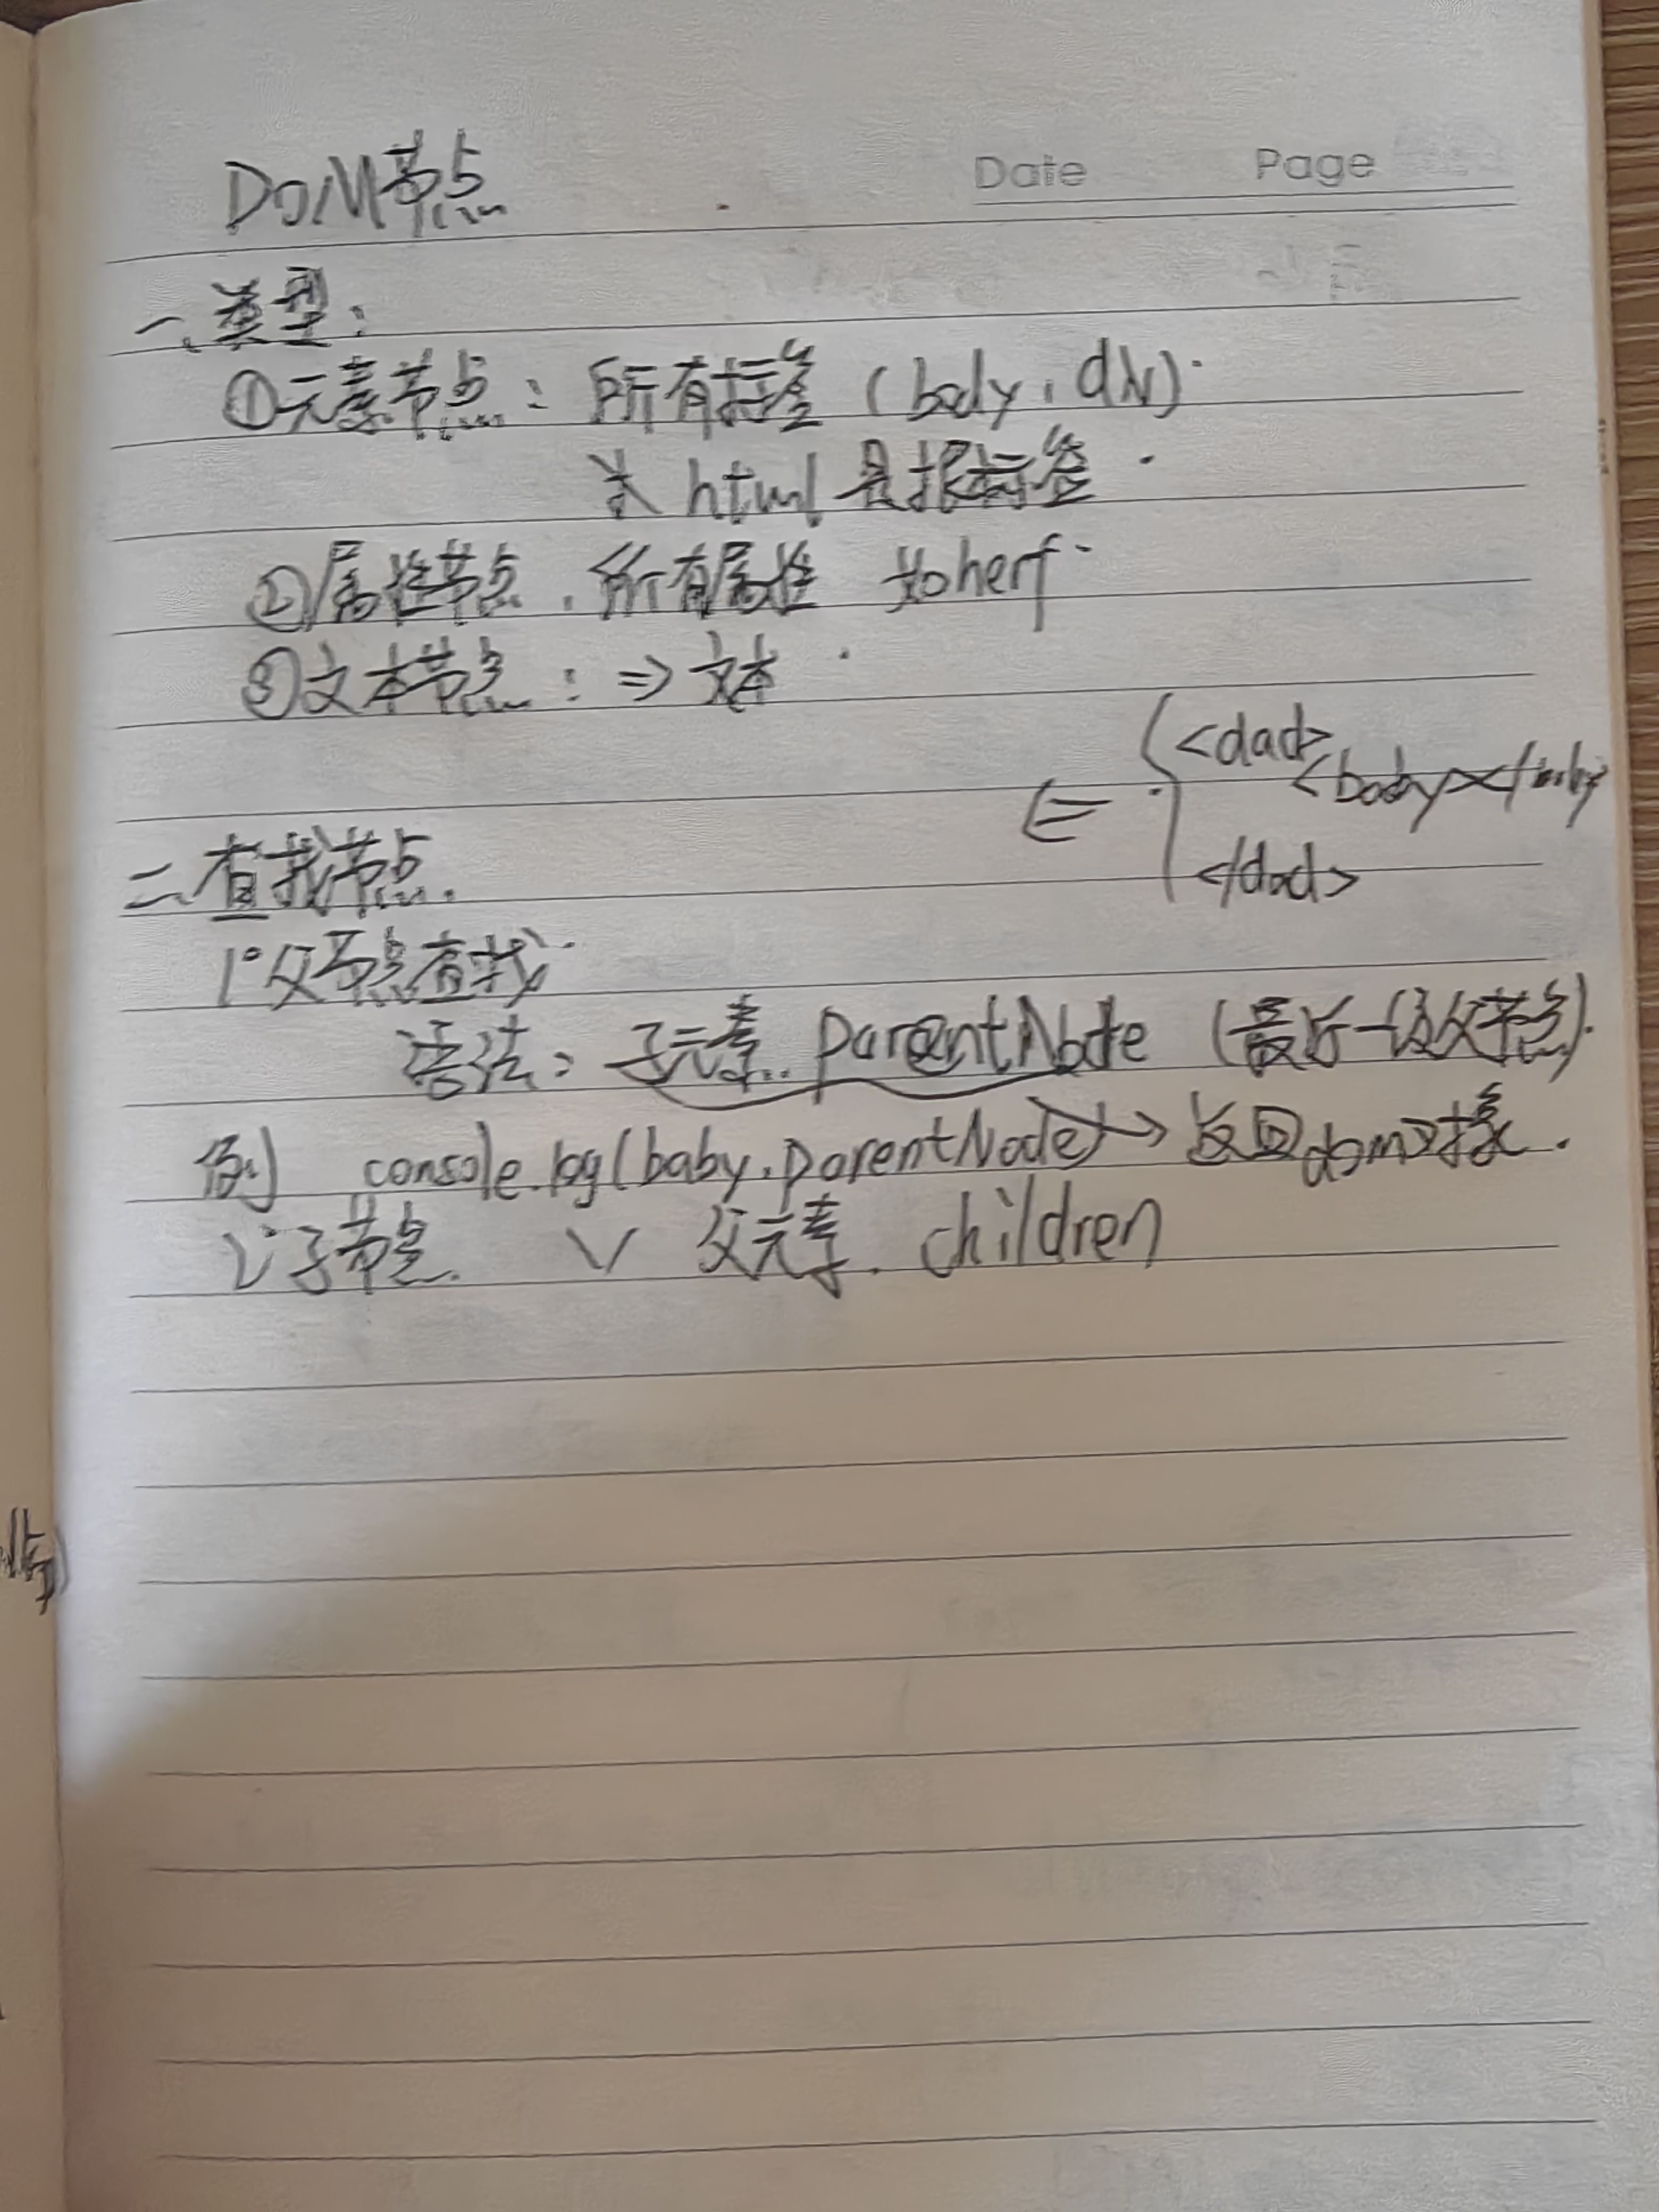 Date Page
DOM节点
一、类型：
①元素节点：所有标签（body，div）.
关 html 是根标签.
②属性节点，所有属性 如herf.
③文本节点：⇒文本.
<dad>
<baby></baby>
</dad>
二、查找节点.
1°父节点查找.
语法：子元素.parentNode（最近一级父节点）.
例 console.log(baby.parentNode)→返回dom对象.
2°子节点. 父元素.children